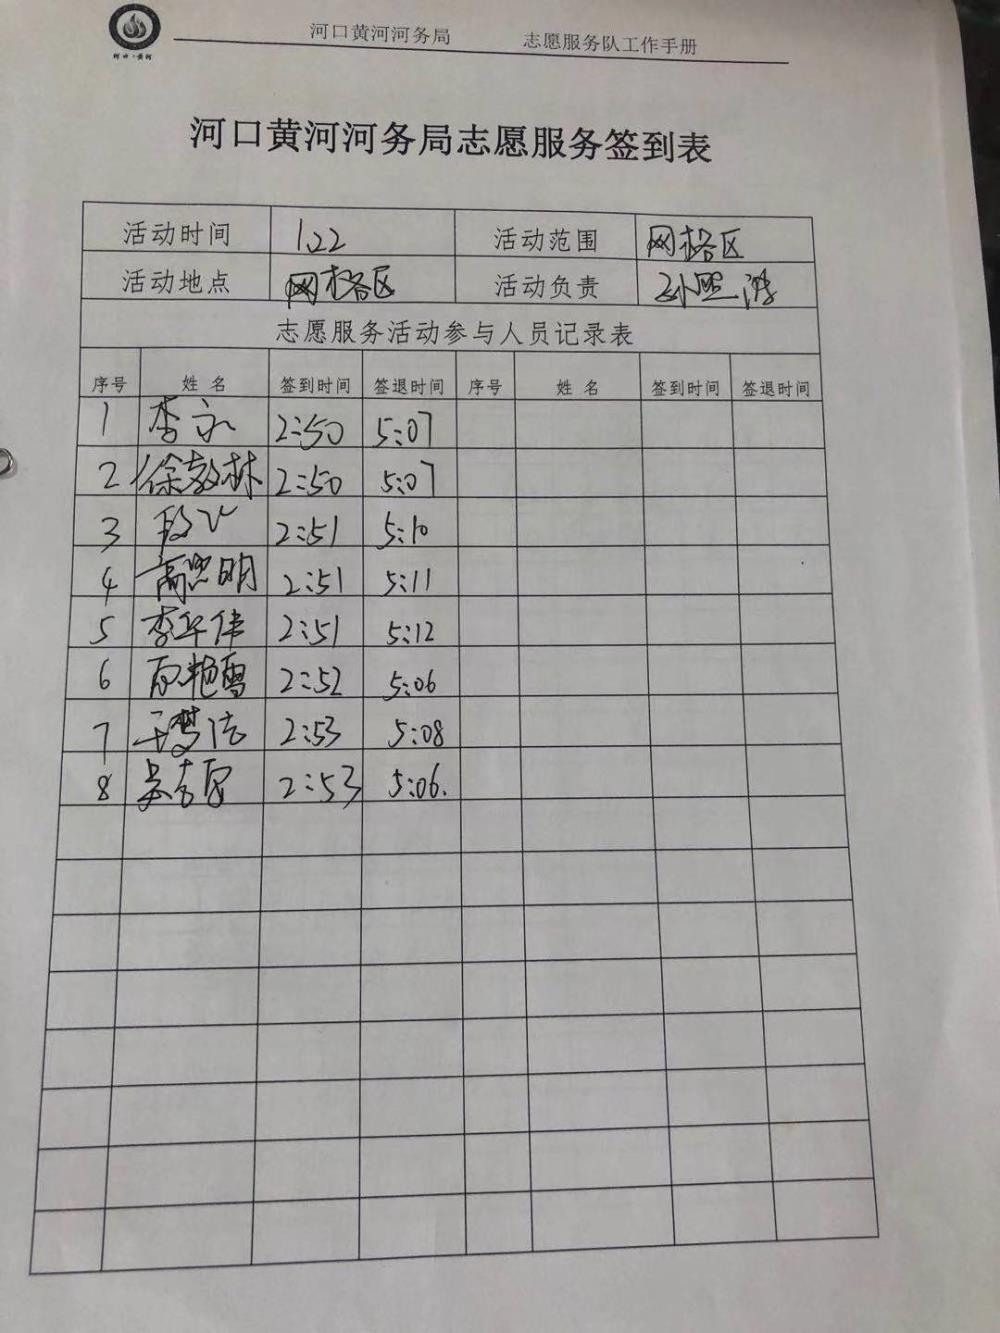 河口·黄河
河口黄河河务局 志愿服务队工作手册
河口黄河河务局志愿服务签到表
活动时间 1.22 活动范围 网格区
活动地点 网格区 活动负责 孙照
志愿服务活动参与人员记录表
序号 姓名 签到时间 签退时间 序号 姓名 签到时间 签退时间
1 李永 2:50 5:07
2 徐敬林 2:50 5:07
3 段 2:51 5:10
4 高思明 2:51 5:11
5 李华伟 2:51 5:12
6 艳雪 2:52 5:06
7 王梦洁 2:53 5:08
8 吴 2:53 5:06.